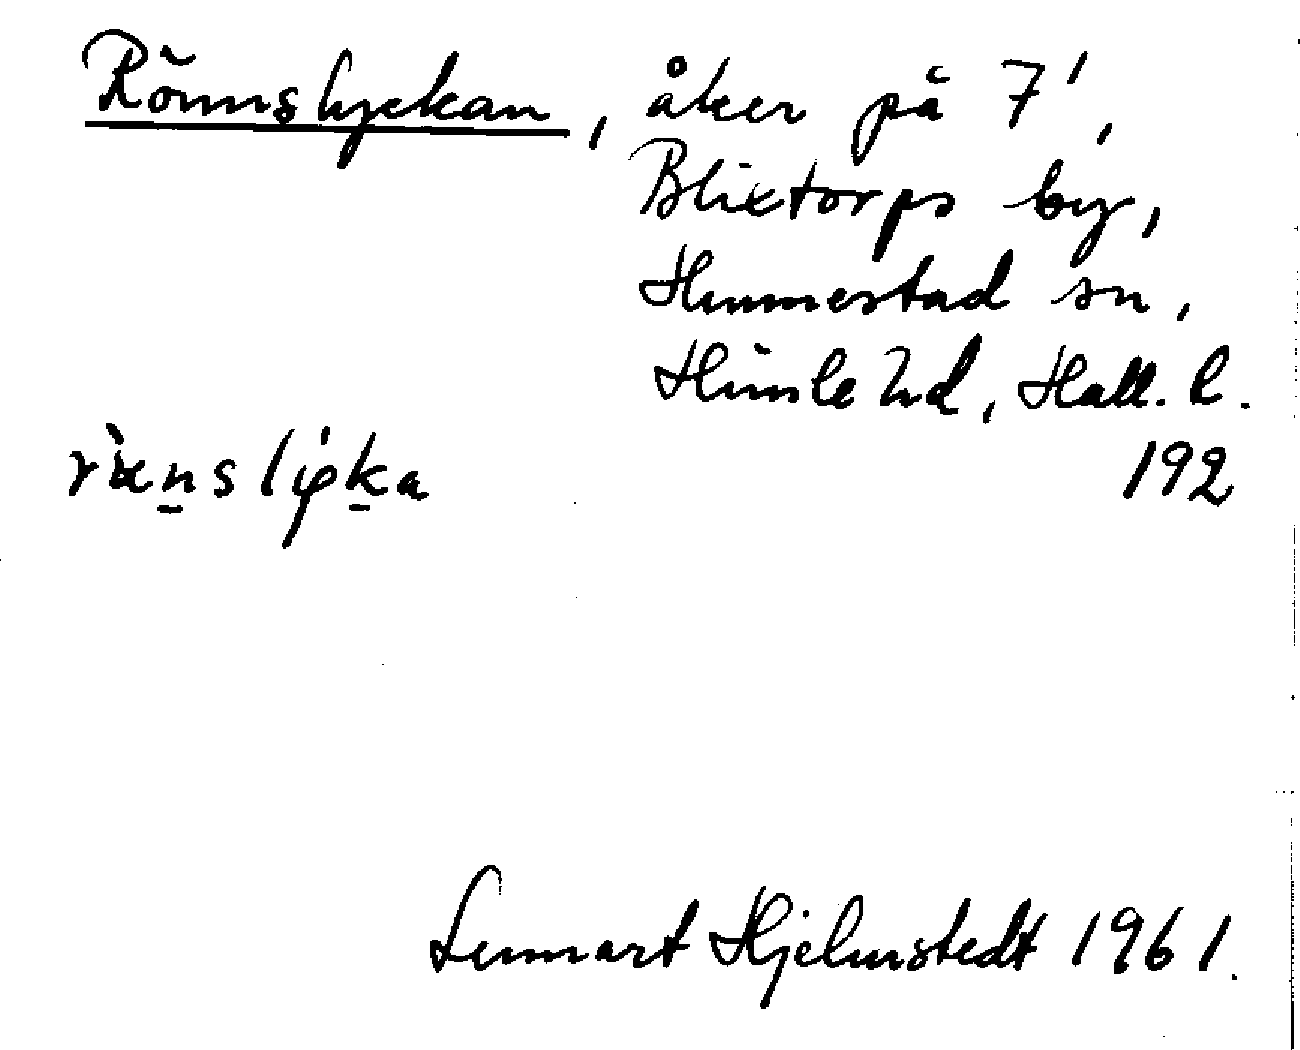 Rönnslyckan, åker på 7',
Blixtorps by,
Hunnestad sn,
Himle hd, Hall. l.
192
Lennart Hjelmstedt 1961.